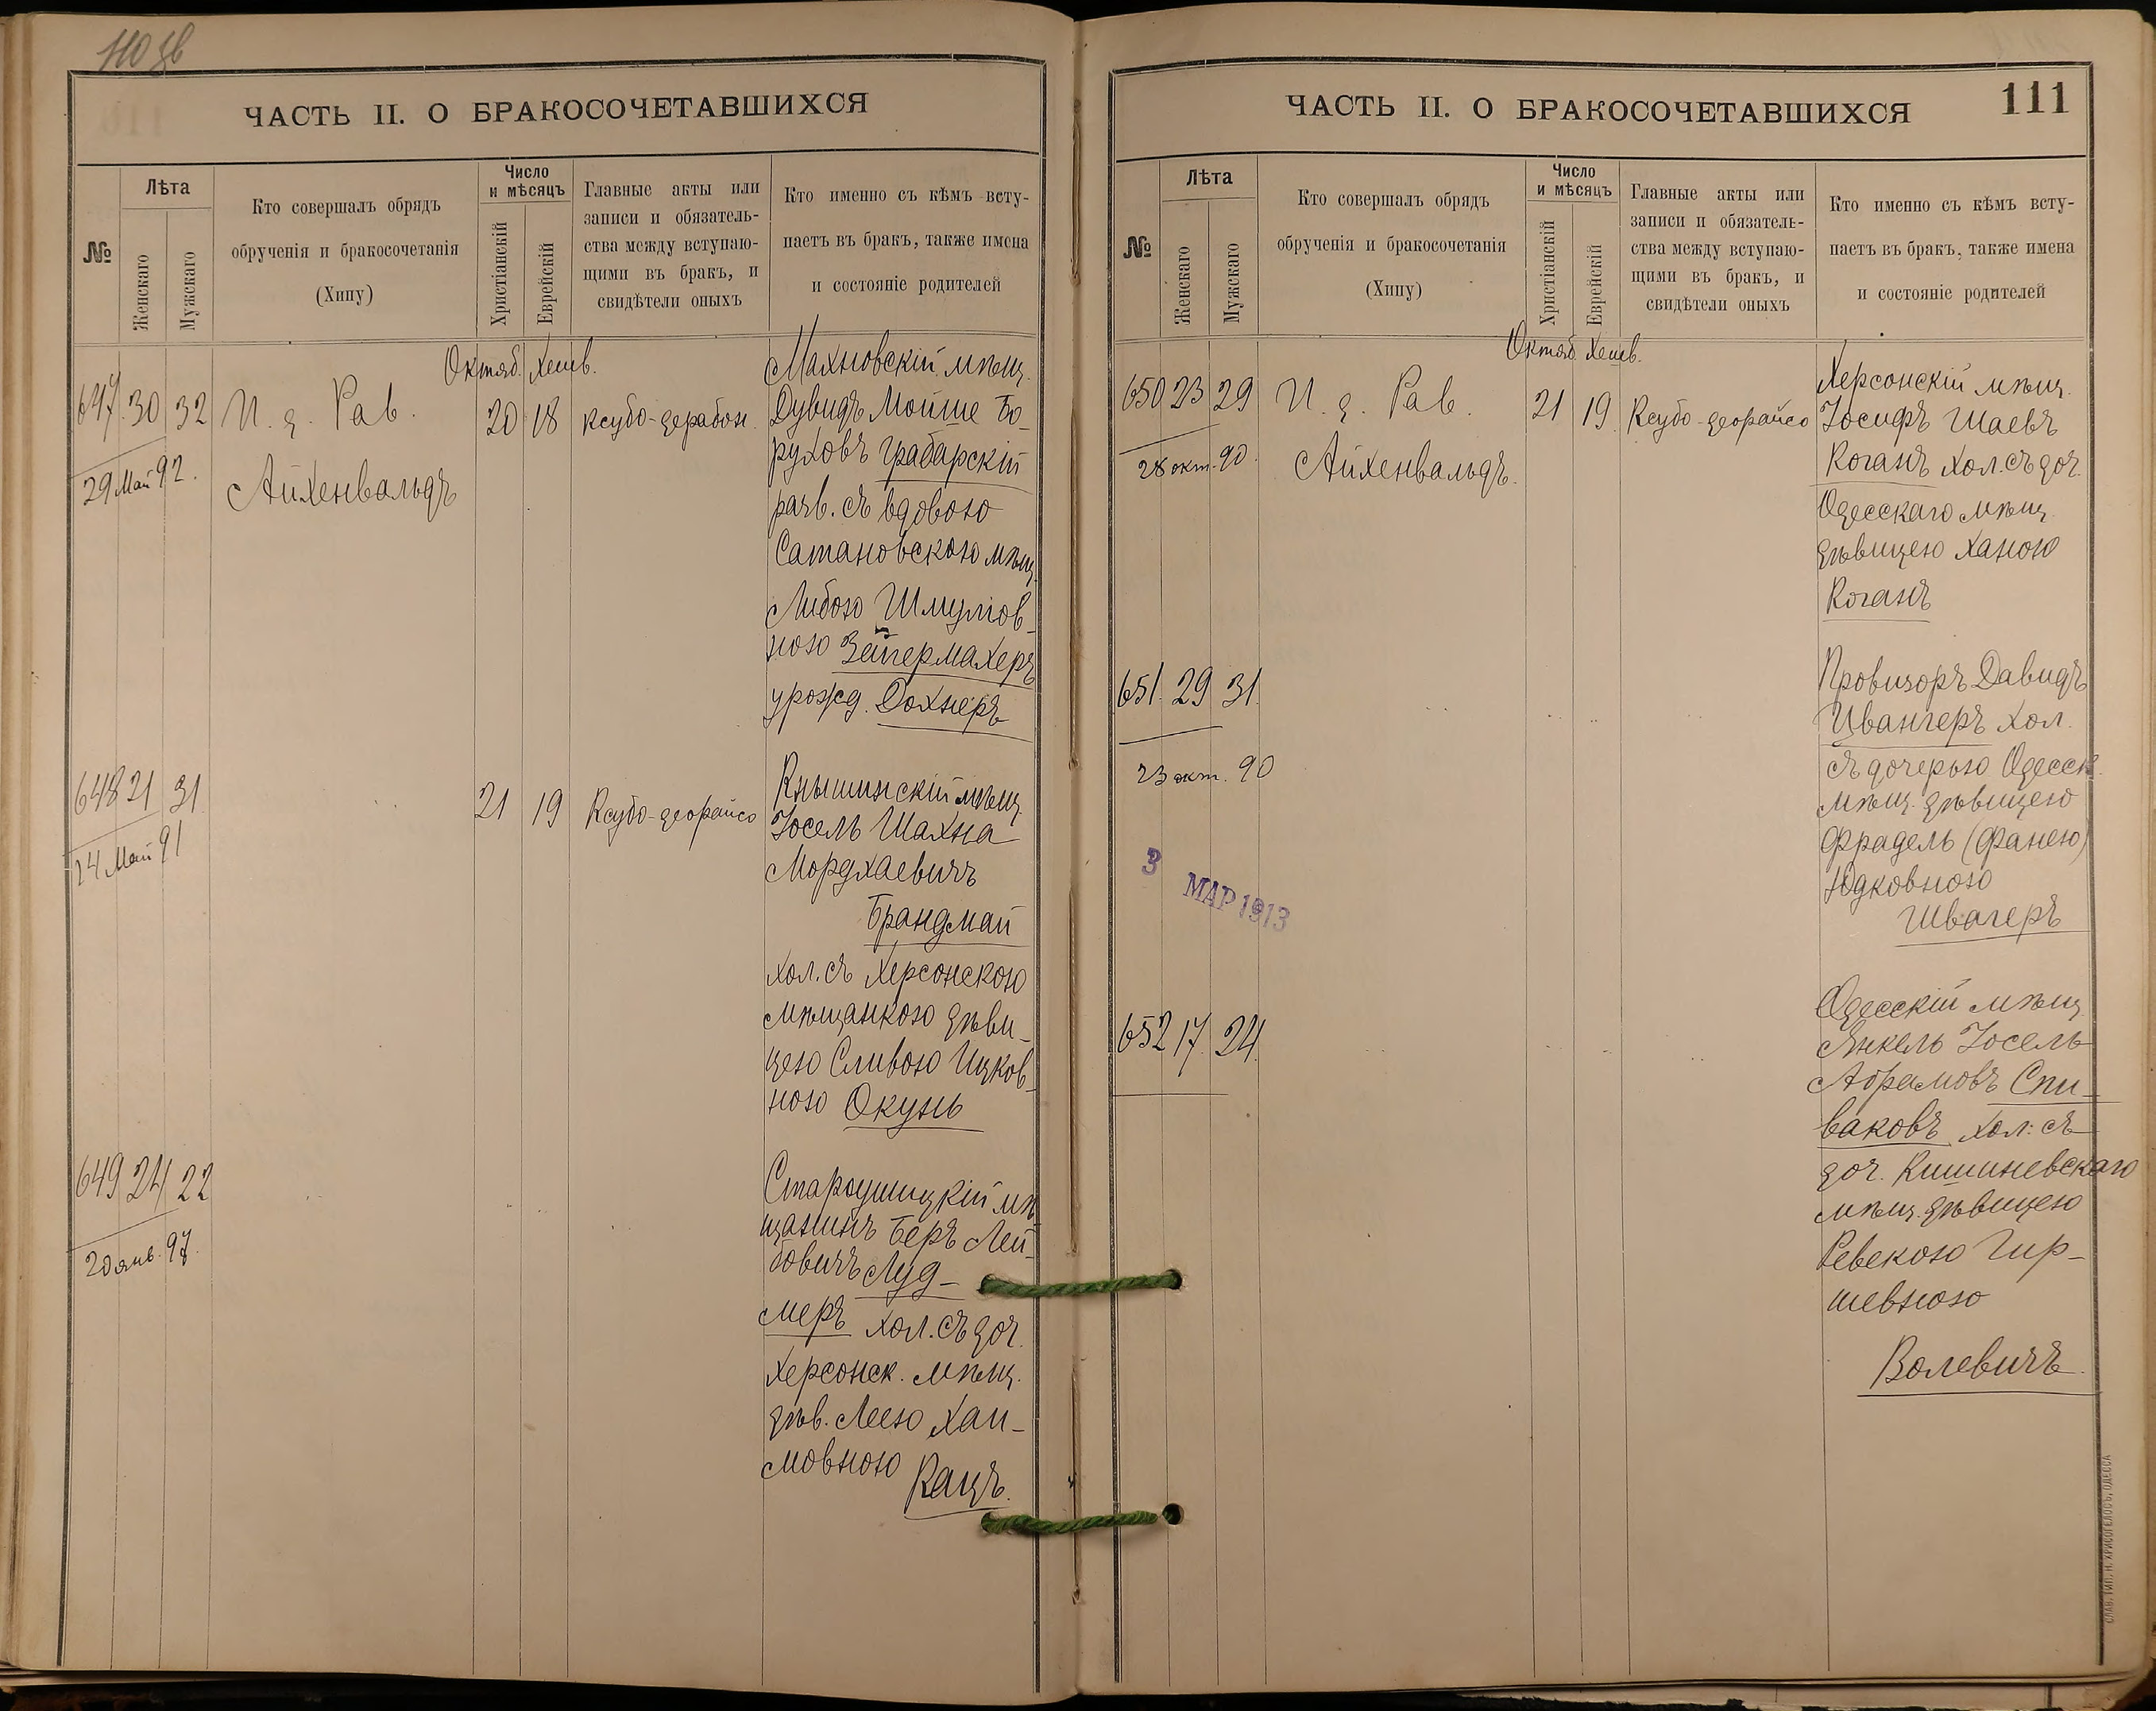 110 об
ЧАСТЬ II. О БРАКОСОЧЕТАВШИХСЯ
№
Лѣта
Женскаго
Мужскаго
Кто совершалъ обрядъ
обрученія и бракосочетанія
(Хипу)
Число
и мѣсяцъ
Христіанскій
Еврейскій
Главные акты или
записи и обязатель-
ства между вступаю-
щими въ бракъ, и
свидѣтели оныхъ
Кто именно съ кѣмъ всту-
паетъ въ бракъ, также имена
и состояніе родителей
Октяб. Хешв.
647. 30 32
29 Май 92.
И. д. Рав.
Айхенвальдъ
20 18
Ксубо-дерабон.
Махновскій мѣщ.
Дувидъ Мойше Бо-
руховъ Грабарскій
разв. съ вдовою
Сатановскою мѣщ.
Либою Шмулов-
ною Зейгермахеръ
урожд. Дохнеръ
648 21 31
24 Май 91
21 19
Ксубо-деорайсо
Кнышинскій мѣщ.
Іосель Шахна
Мордхаевичъ
Брандман
хол. съ Херсонскою
мѣщанкою дѣви-
цею Сливою Ицков-
ною Окунь
649 24 22
20 янв. 97.
Староушицкій мѣ-
щанинъ Беръ Лей-
бовичъ Луд-
меръ хол. съ доч.
Херсонск. мѣщ.
дѣв. Леею Хаи-
мовною
Кацъ.
ЧАСТЬ II. О БРАКОСОЧЕТАВШИХСЯ
111
№
Лѣта
Женскаго
Мужскаго
Кто совершалъ обрядъ
обрученія и бракосочетанія
(Хипу)
Число
и мѣсяцъ
Христіанскій
Еврейскій
Главные акты или
записи и обязатель-
ства между вступаю-
щими въ бракъ, и
свидѣтели оныхъ
Кто именно съ кѣмъ всту-
паетъ въ бракъ, также имена
и состояніе родителей
Октяб. Хешв.
650 23 29
28 окт. 90.
И. д. Рав.
Айхенвальдъ.
21 19
Ксубо-деорайсо
Херсонскій мѣщ.
Іосифъ Шаевъ
Коганъ хол. съ доч.
Одесскаго мѣщ.
дѣвицею Ханою
Коганъ
651. 29 31.
23 окт. 90
3 МАР 1913
Провизоръ Давидъ
Цвангеръ хол.
съ дочерью Одесск.
мѣщ. дѣвицею
Фрадель (Фанею)
Юдковною
Швагеръ
652 17 24.
Одесскій мѣщ.
Янкель Іосель
Абрамовъ Спи-
ваковъ хол. съ
доч. Кишиневскаго
мѣщ. дѣвицею
Ревекою Гир-
шевною
Волевичъ.
СЛАВ. ТИП. Н. ХРИСОГЕЛОСЪ, ОДЕССА